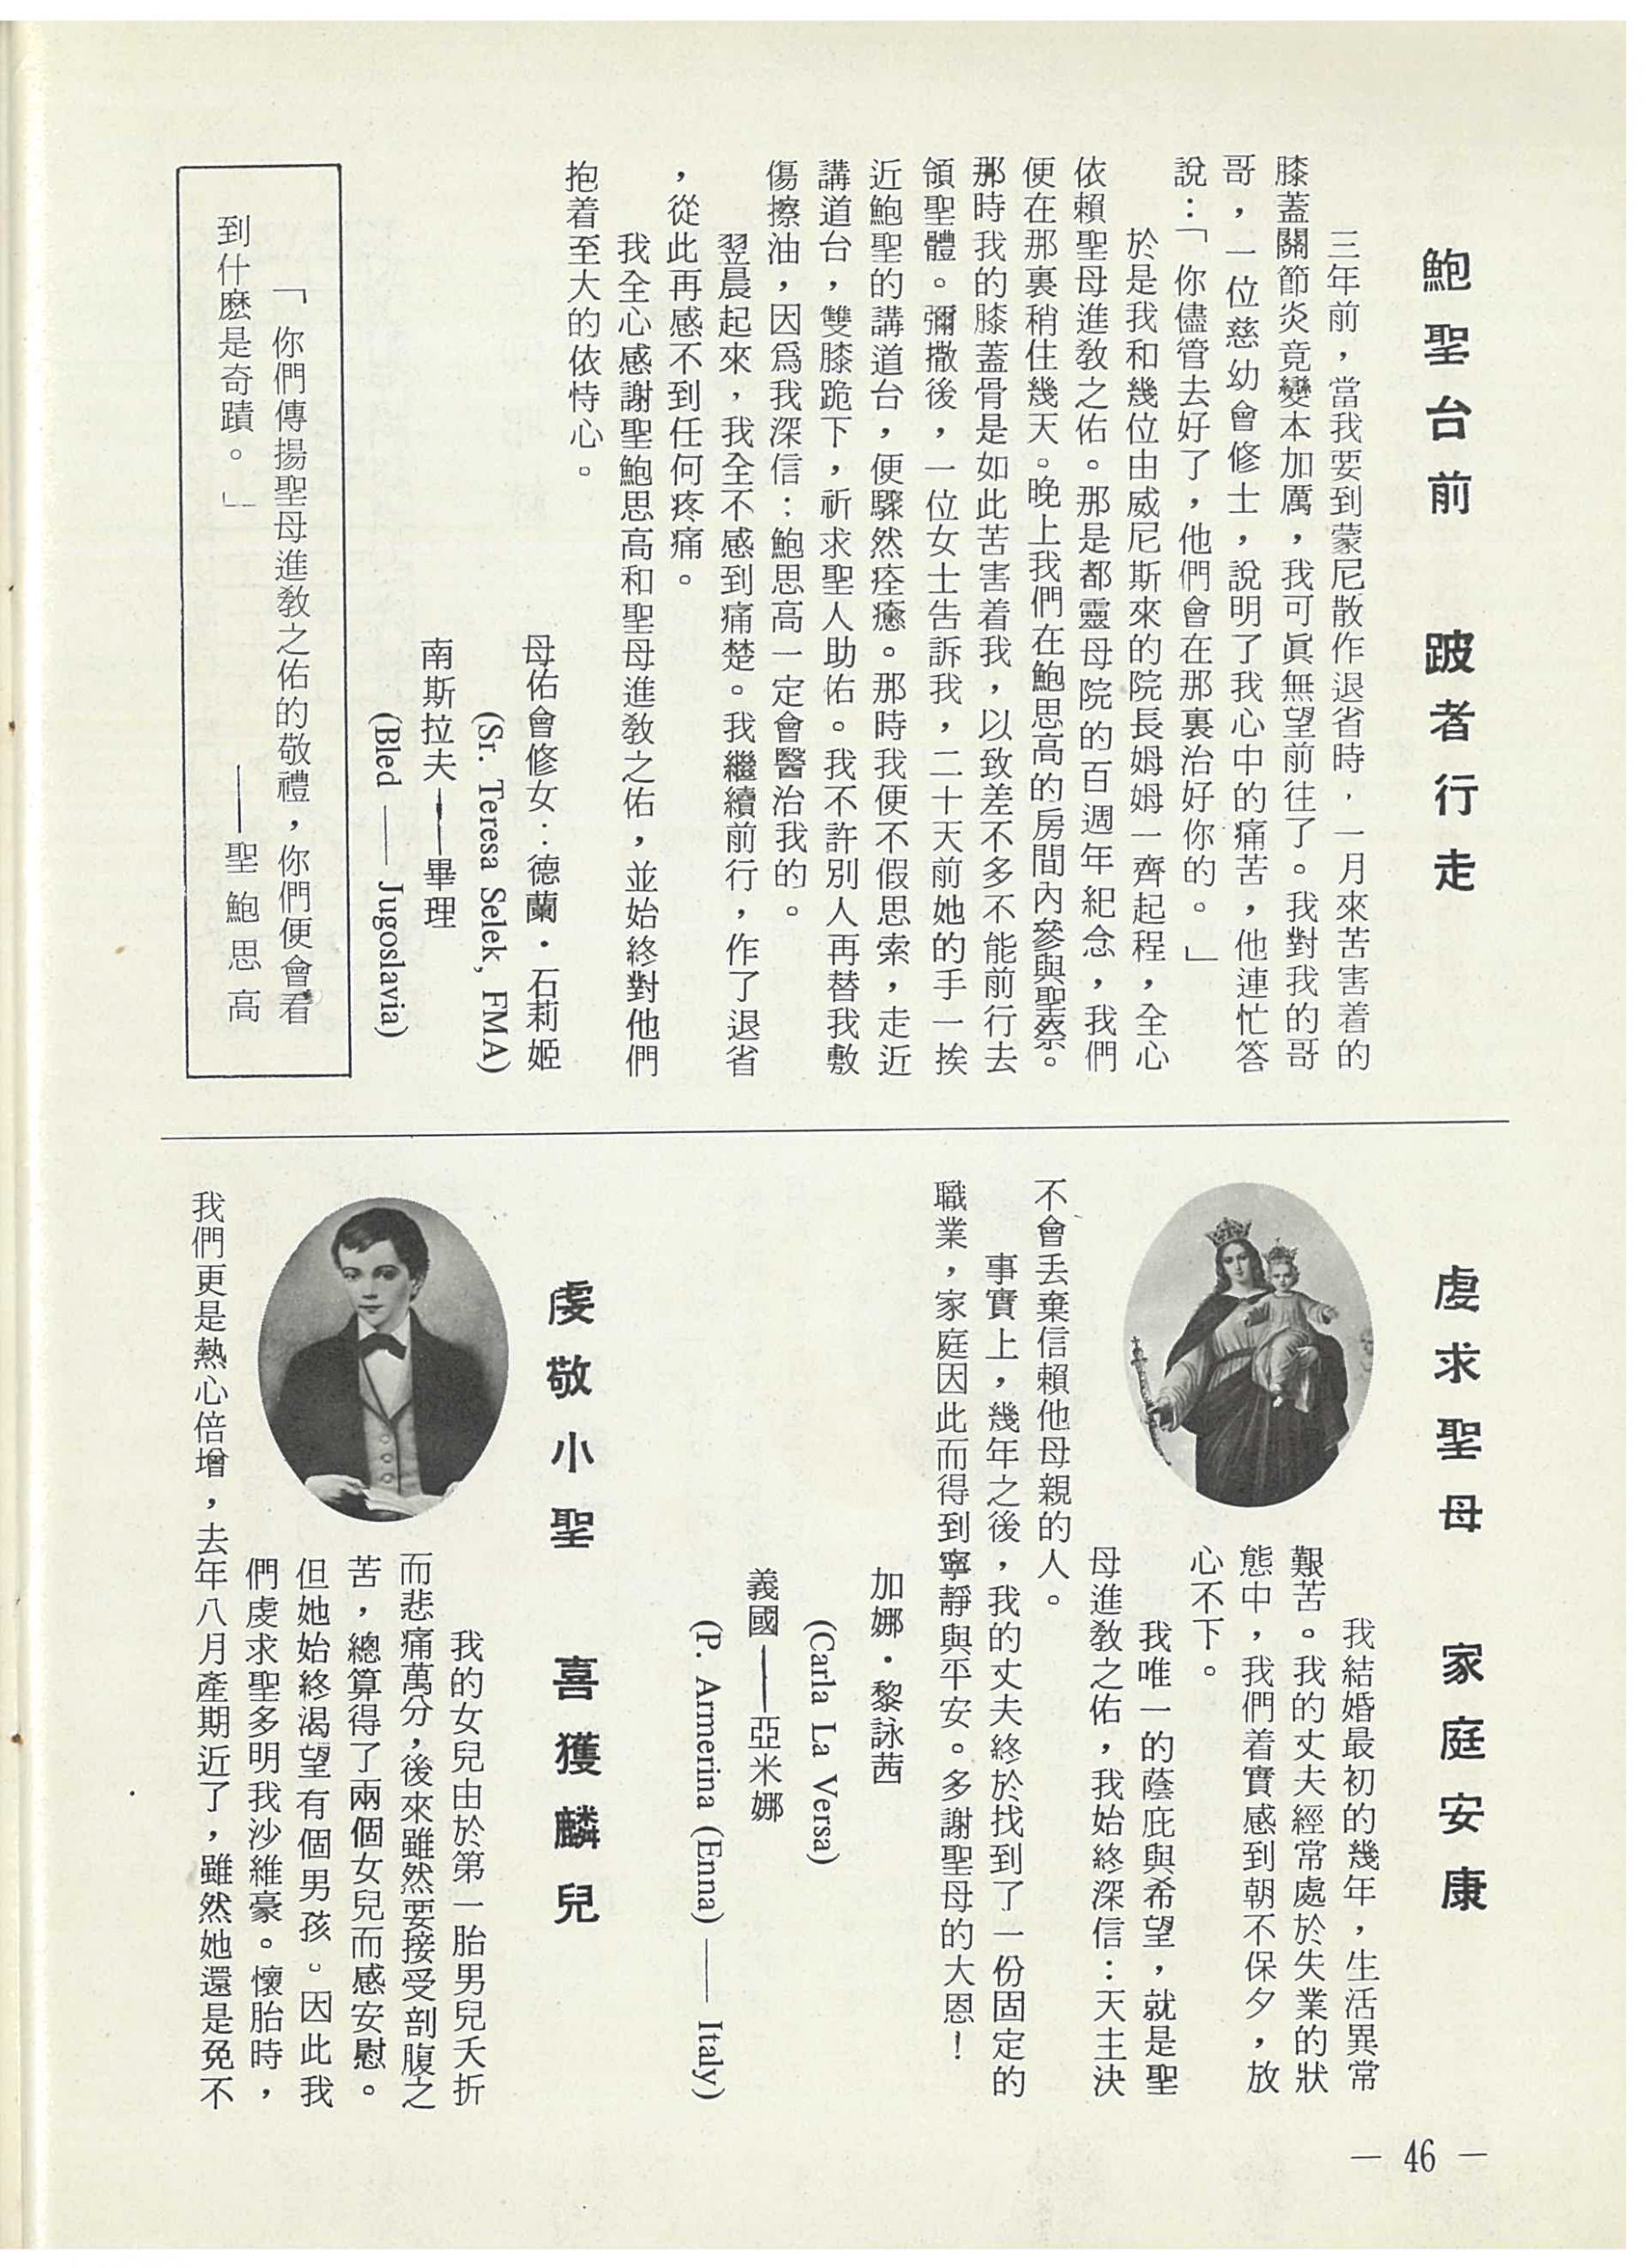 鮑聖台前　跛者行走
三年前，當我要到蒙尼散作退省時，一月來苦害着的
膝蓋關節炎竟變本加厲，我可眞無望前往了。我對我的哥
哥，一位慈幼會修士，說明了我心中的痛苦，他連忙答
說：「你儘管去好了，他們會在那裏治好你的。」
於是我和幾位由威尼斯來的院長姆姆一齊起程，全心
依賴聖母進敎之佑。那是都靈母院的百週年紀念，我們
便在那裏稍住幾天。晚上我們在鮑思高的房間內參與聖祭。
那時我的膝蓋骨是如此苦害着我，以致差不多不能前行去
領聖體。彌撒後，一位女士告訴我，二十天前她的手一挨
近鮑聖的講道台，便驟然痊癒。那時我便不假思索，走近
講道台，雙膝跪下，祈求聖人助佑。我不許別人再替我敷
傷擦油，因爲我深信：鮑思高一定會醫治我的。
翌晨起來，我全不感到痛楚。我繼續前行，作了退省
，從此再感不到任何疼痛。
我全心感謝聖鮑思高和聖母進敎之佑，並始終對他們
抱着至大的依恃心。
母佑會修女：德蘭・石莉姬
(Sr. Teresa Selek, FMA)
南斯拉夫——畢理
(Bled —— Jugoslavia)
「你們傳揚聖母進敎之佑的敬禮，你們便會看
到什麽是奇蹟。」　——聖鮑思高
虔求聖母　家庭安康
我結婚最初的幾年，生活異常
艱苦。我的丈夫經常處於失業的狀
態中，我們着實感到朝不保夕，放
心不下。
我唯一的蔭庇與希望，就是聖
母進敎之佑，我始終深信：天主決
不會丟棄信賴他母親的人。
事實上，幾年之後，我的丈夫終於找到了一份固定的
職業，家庭因此而得到寧靜與平安。多謝聖母的大恩！
加娜・黎詠茜
(Carla La Versa)
義國——亞米娜
(P. Armerina (Enna) —— Italy)
虔敬小聖　喜獲麟兒
我的女兒由於第一胎男兒夭折
而悲痛萬分，後來雖然要接受剖腹之
苦，總算得了兩個女兒而感安慰。
但她始終渴望有個男孩。因此我
們虔求聖多明我沙維豪。懷胎時，
我們更是熱心倍增，去年八月產期近了，雖然她還是免不
— 46 —